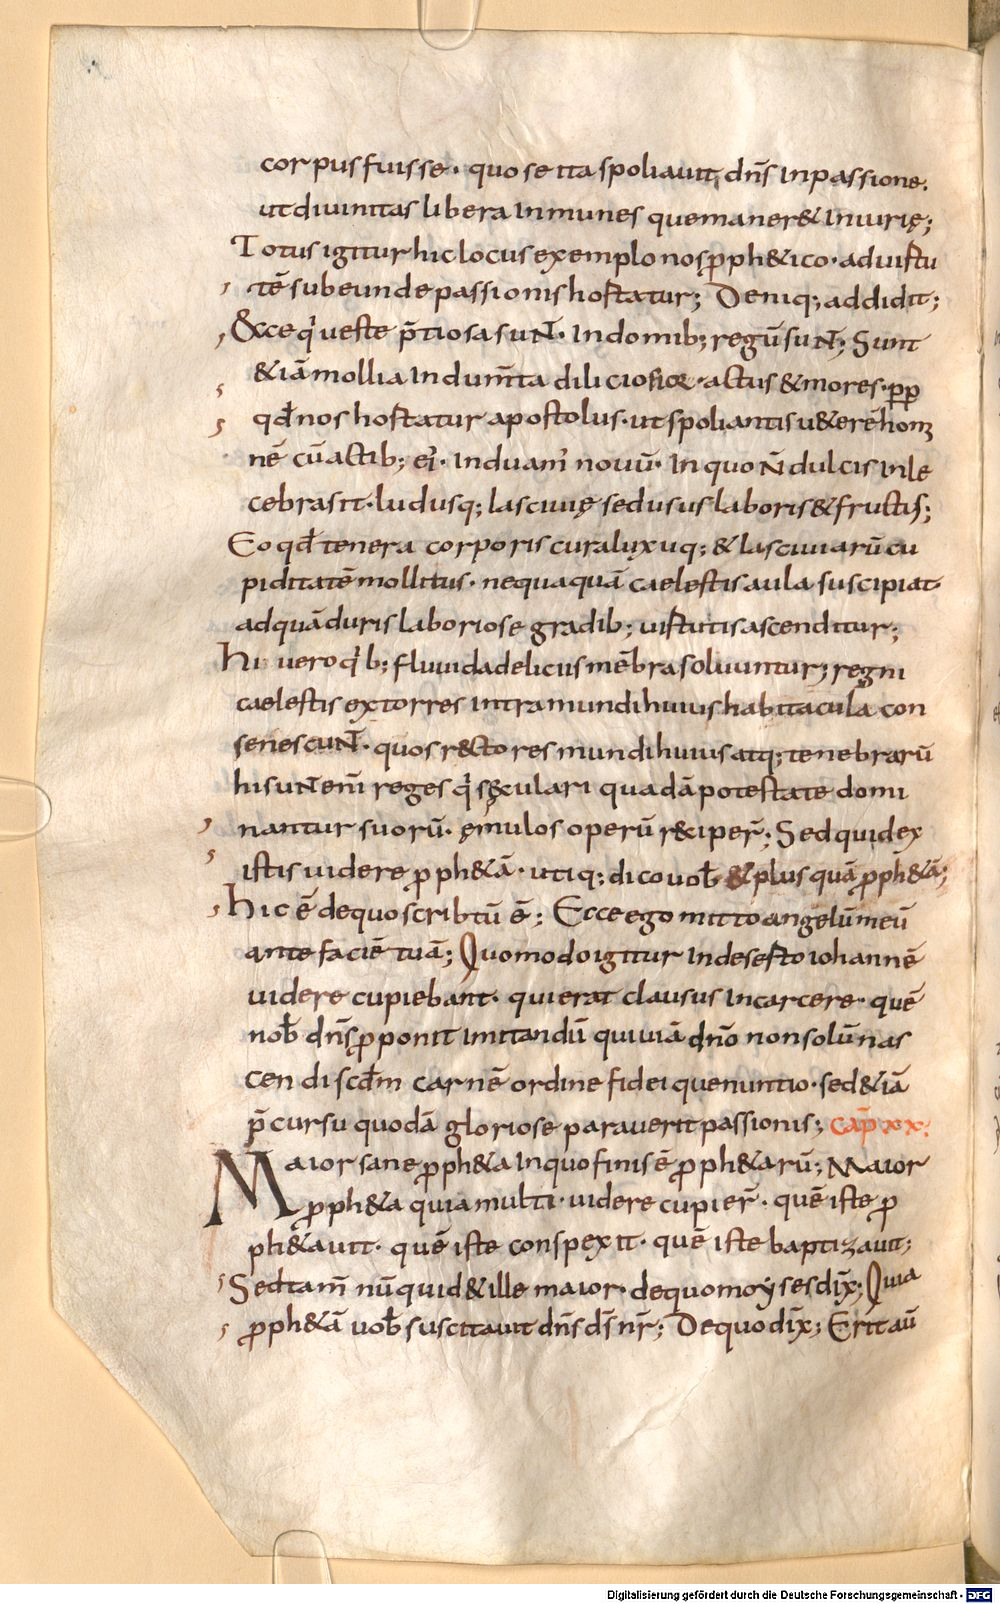 corpus fuisse · quo se ita spoliavit dn̄s in passione.
ut divinitas libera inmunes que maner& iniurię;
Totus igitur hic locus exemplo nos ꝓph&ico · ad uirtu
tē subeunde passionis hortatur; Deniq; addidit;
Ecce q̇ ueste p̄tiosa suNT · In domib; regū suNT; Sunt
&iā mollia indum̄ta diliciosior · actus & mores · ꝓꝑ
qđ nos hortatur apostolus · ut spoliantis u&erē homi
nē cū actib; ei᾽ · induam᾽ nouū · In quo N̄ dulcis inle
cebra sit · ludusq; lasciuię sed usus laboris & fructis;
Eo qđ tenera corporis cura luxuq; & lasciuiarū cu
piditatē mollitus · nequaquā caelestis aula suscipiat
ad quā duris laboriose gradib; uirtutis ascenditur;
hi uero q̇b; fluuida deliciis mēbra soluuntur; regni
caelestis extorres intra mundi huius habitacula con
senescuNT · quos r&ctores mundi huius atq; tenebrarū
hi suNT eni᷒ reges q̇ sęculari quadā potestate domi
nantur suorū · ęmulos operū r&iper̄; Sed quid ex
istis uidere ꝓph&ā · utiq; dico uob̄ & plus quā ꝓph&ā;
hic ē de quo scribtū ē; Ecce ego mitto angelū meū
ante faciē tuā; Quomodo igitur in deserto iohannē
uidere cupiebant · qui erat clausus in carcere · quē
nob̄ dn̄s ꝓponit imitandū qui uiā dn̄o non solū nas
cendi scđm carnē ordine fidei que nuntio · sed &iā
p̄cursu quodā gloriose parauerit passionis; cap̄ xx:
Maior sane ꝓph&a in quo finis ē ꝓph&arū; Maior
ꝓph&a quia multi · uidere cupier̄ · quē iste ꝓ
ph&auit · quē iste conspexit · quē iste baptizauit;
Sed tam̄ nūquid & ille maior · de quo moẏses dix̄; Quia
ꝓph&ā uob̄ suscitauit dn̄s ds̄ nr̄; De quo dix̄; Erit aū
Digitalisierung gefördert durch die Deutsche Forschungsgemeinschaft - DFG